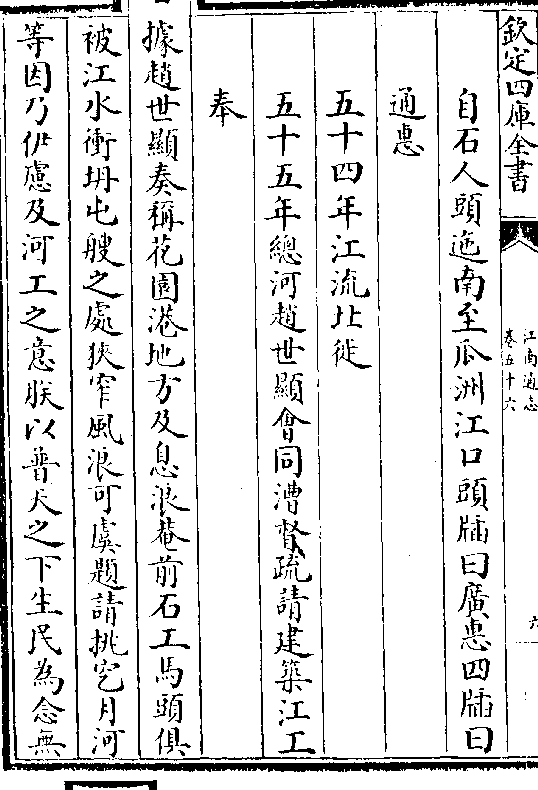 欽定四庫全書
江南通志
卷五十六
六
自石人頭迤南至瓜洲江口頭牐曰廣惠四牐曰
通惠
五十四年江流北徙
五十五年總河趙世顯會同漕督疏請建築江工
奉
據趙世顯奏稱花園港地方及息浪菴前石工馬頭俱
被江水衝坍屯艘之處狹窄風浪可虞題請挑穵月河
等因乃伊慮及河工之意朕以普天之下生民為念無